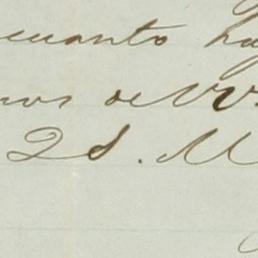 cuanto ha
nos de VV.
2S. M